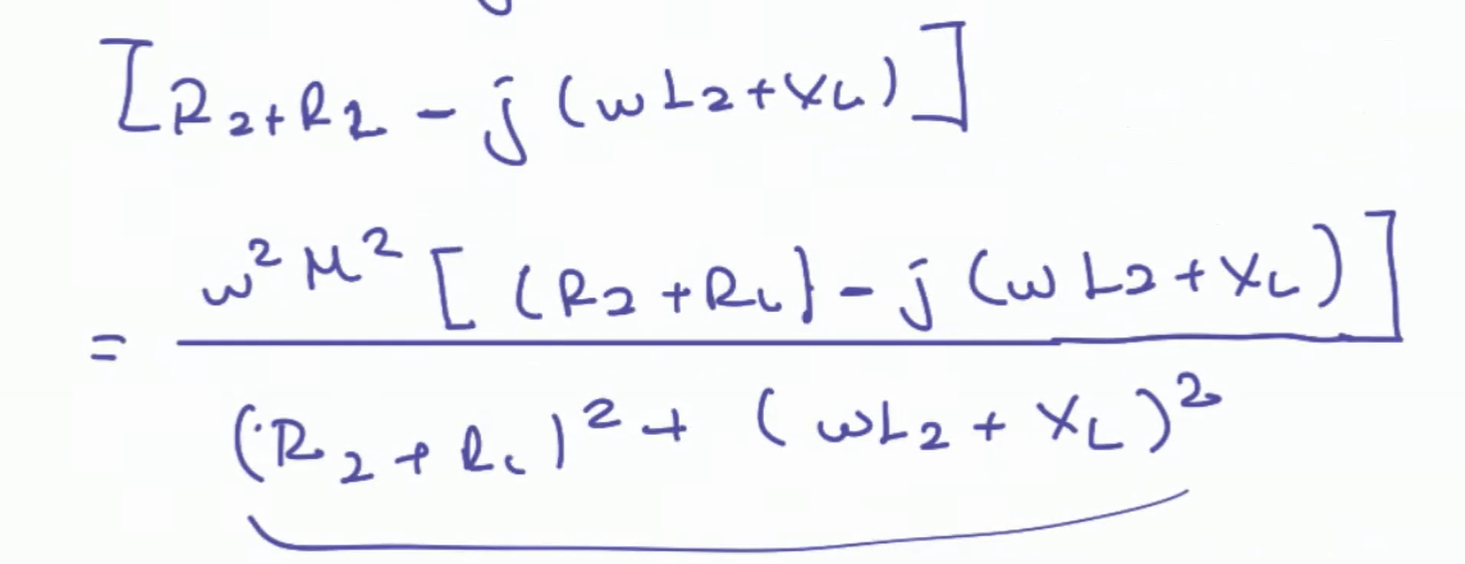 [R₂+R₂ - j(ωL₂+X_L)]
= ω²M² [(R₂+R_L) - j(ωL₂+X_L)]
(R₂+R_L)² + (ωL₂+X_L)²